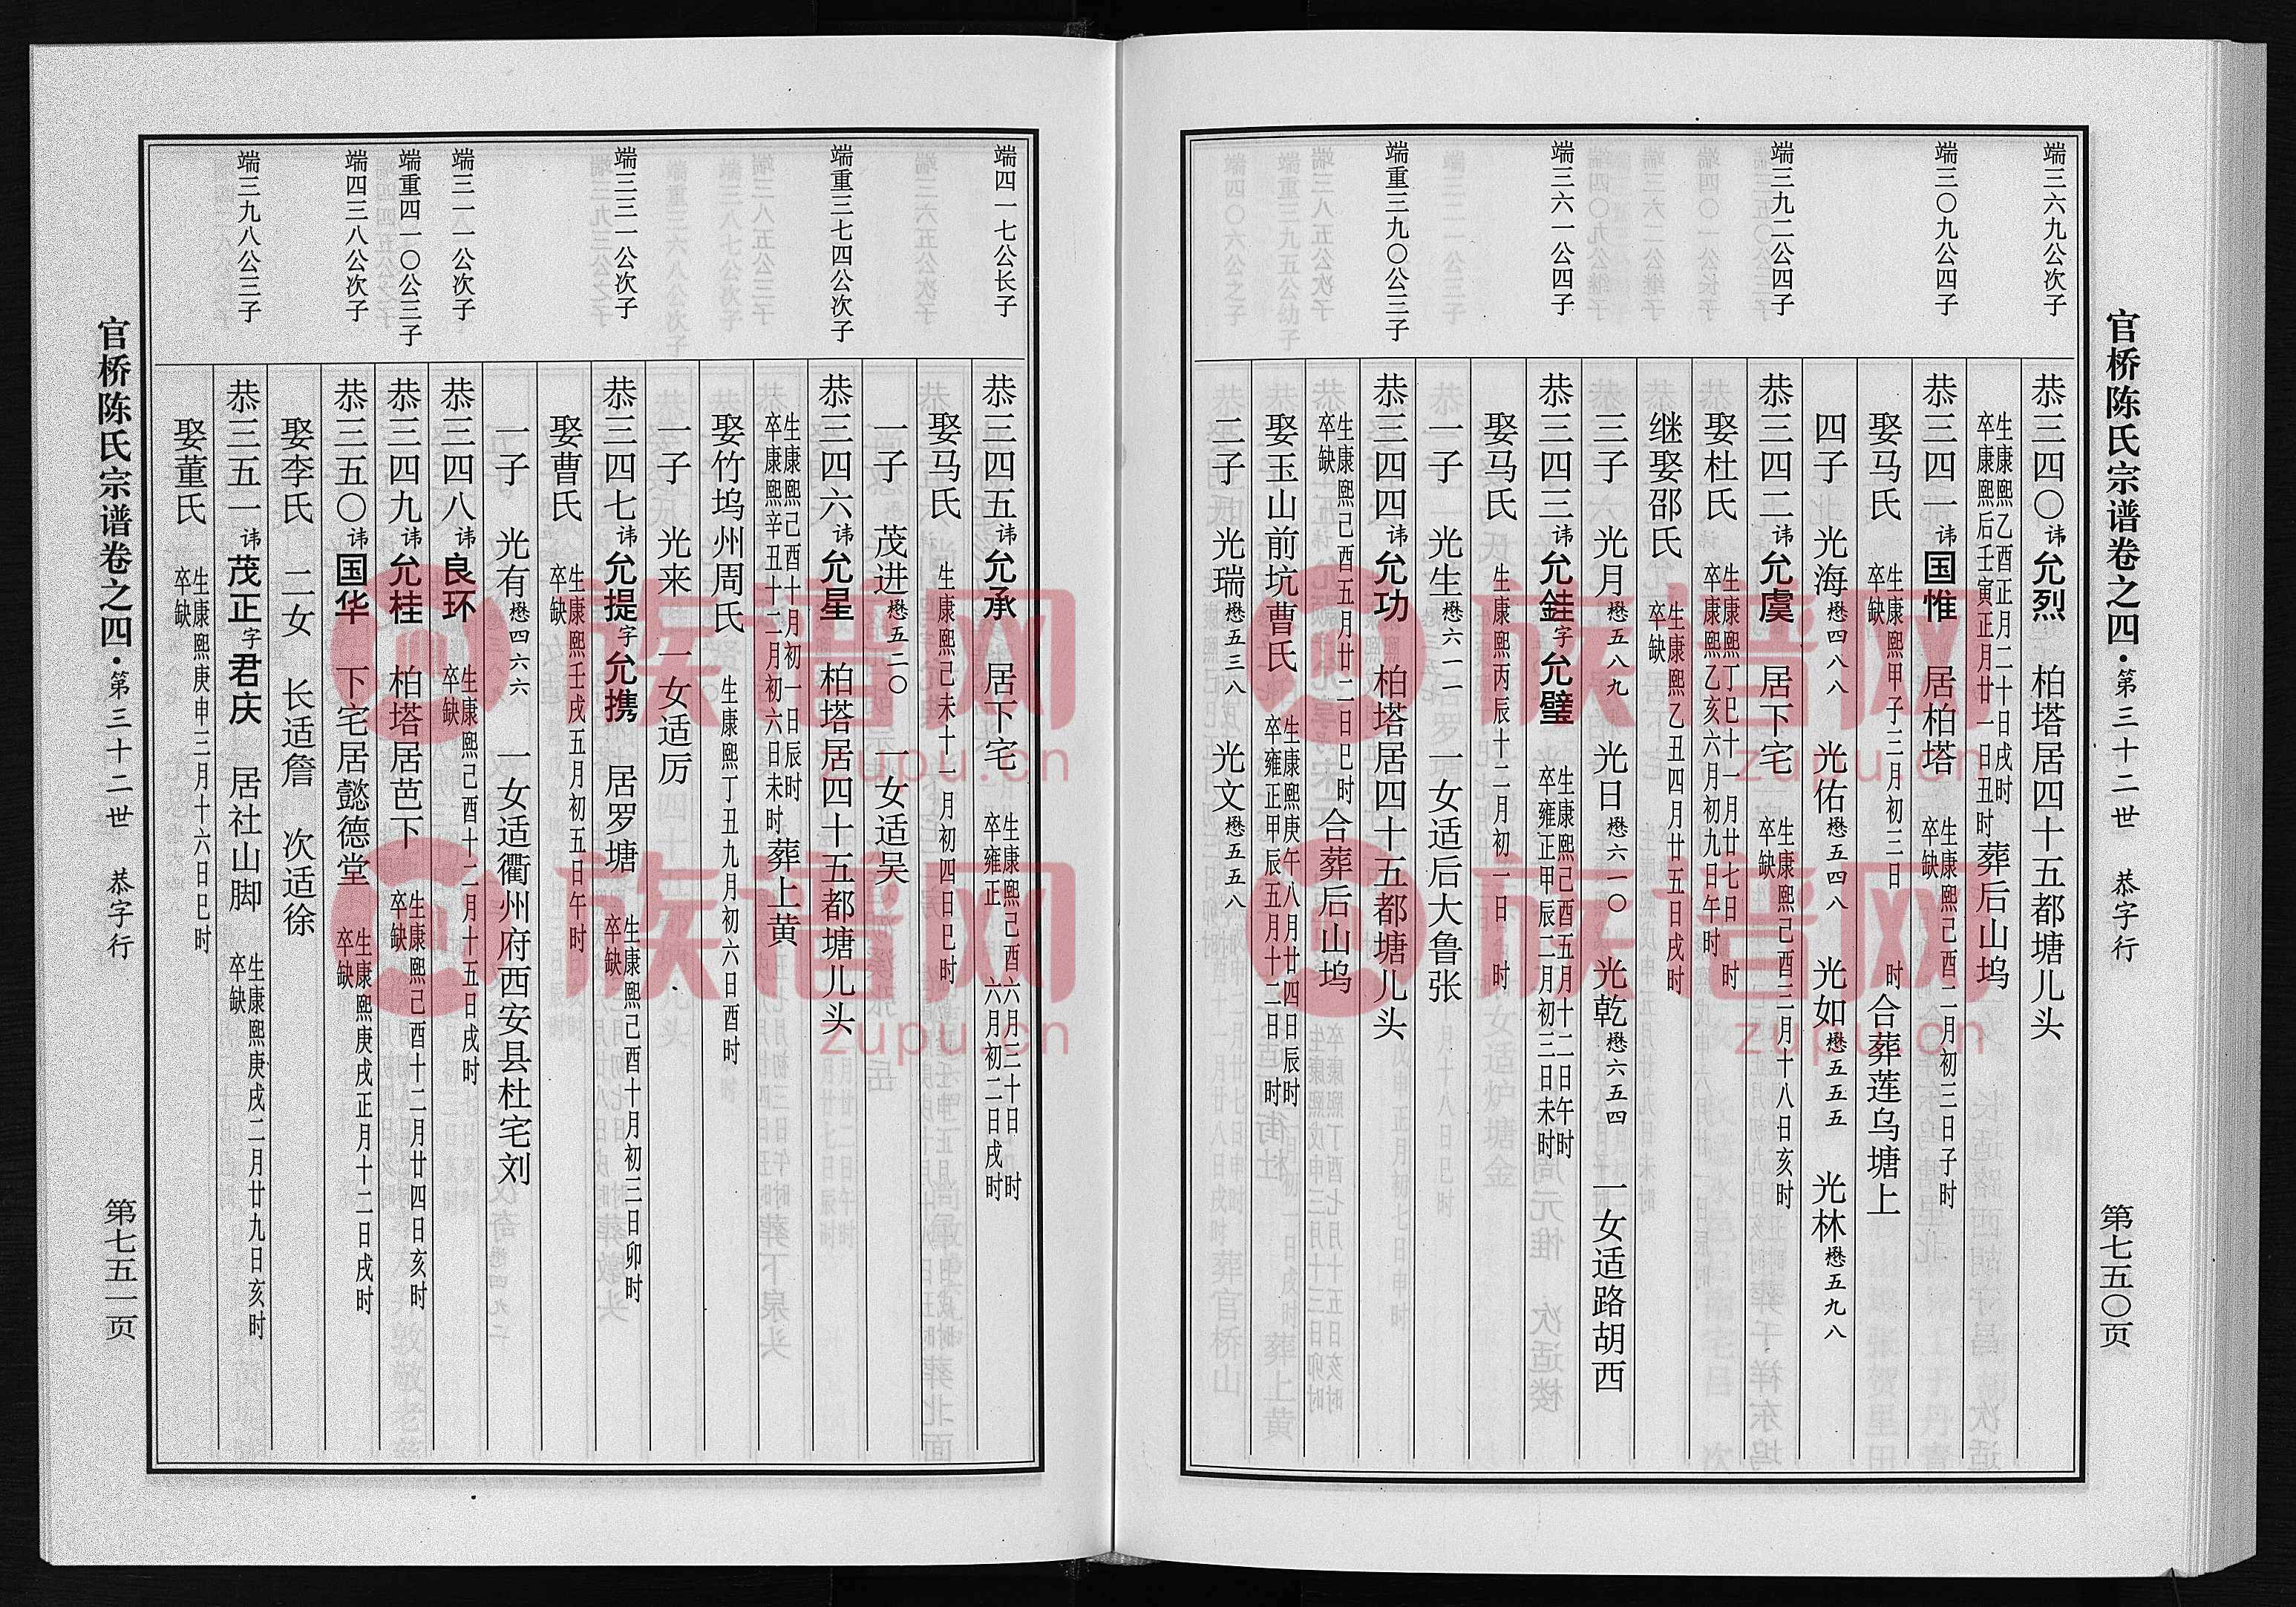 官桥陈氏宗谱卷之四·第三十二世 恭字行
第七五〇页
端三六九公次子
恭三四〇讳允烈 柏塔居四十五都塘儿头
生康熙乙酉正月二十日戌时
卒康熙后壬寅正月廿一日丑时 葬后山坞
端三〇九公四子
恭三四一讳国惟 居柏塔 生康熙己酉二月初三日子时
卒缺
娶马氏 生康熙甲子三月初三日 时
卒缺
合葬莲乌塘上
四子 光海懋四八八 光佑懋五四八 光如懋五五五 光林懋五九八
端三九二公四子
恭三四二讳允虞 居下宅 生康熙己酉三月十八日亥时
卒缺
娶杜氏 生康熙丁巳十一月廿七日 时
卒康熙乙亥六月初九日午时
继娶邵氏 生康熙乙丑四月廿五日戌时
卒缺
三子 光月懋五八九 光日懋六一〇 光乾懋六五四 一女适路胡西
端三六一公四子
恭三四三讳允銈字允璧 生康熙己酉五月十二日午时
卒雍正甲辰二月初三日未时
娶马氏 生康熙丙辰十二月初一日 时
一子 光生懋六一一 一女适后大鲁张
端重三九〇公三子
恭三四四讳允功 柏塔居四十五都塘儿头
生康熙己酉五月廿二日巳时
卒缺
合葬后山坞
娶玉山前坑曹氏 生康熙庚午八月廿四日辰时
卒雍正甲辰五月十二日 时
二子 光瑞懋五三八 光文懋五五八
端四一七公长子
恭三四五讳允承 居下宅 生康熙己酉六月三十日 时
卒雍正 六月初二日戌时
娶马氏 生康熙己未十一月初四日巳时
一子 茂进懋五二〇 一女适吴
端重三七四公次子
恭三四六讳允星 柏塔居四十五都塘儿头
生康熙己酉十月初一日辰时
卒康熙辛丑十二月初六日未时 葬上黄
娶竹坞州周氏 生康熙丁丑九月初六日酉时
一子 光来 一女适厉
端三三一公次子
恭三四七讳允提字允携 居罗塘 生康熙己酉十月初三日卯时
卒缺
娶曹氏 生康熙壬戌五月初五日午时
卒缺
一子 光有懋四六六 一女适衢州府西安县杜宅刘
端三一一公次子
恭三四八讳良环 生康熙己酉十二月十五日戌时
卒缺
端重四一〇公三子
恭三四九讳允桂 柏塔居芭下 生康熙己酉十二月廿四日亥时
卒缺
端四三八公次子
恭三五〇讳国华 下宅居懿德堂 生康熙庚戌正月十二日戌时
卒缺
娶李氏 二女 长适詹 次适徐
端三九八公三子
恭三五一讳茂正字君庆 居社山脚 生康熙庚戌二月廿九日亥时
卒缺
娶董氏 生康熙庚申三月十六日巳时
卒缺
官桥陈氏宗谱卷之四·第三十二世 恭字行
第七五一页
族谱网
zupu.cn
族谱网
zupu.cn
族谱网
zupu.cn
族谱网
zupu.cn